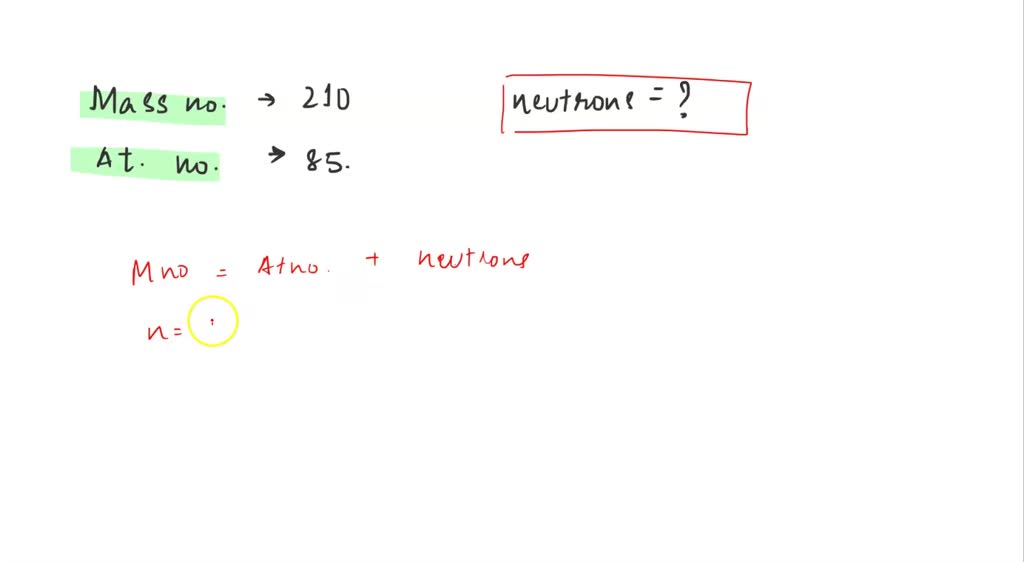 Mass no. → 210
neutrons = ?
At. no. → 85.
M no = At no. + neutrons
n =